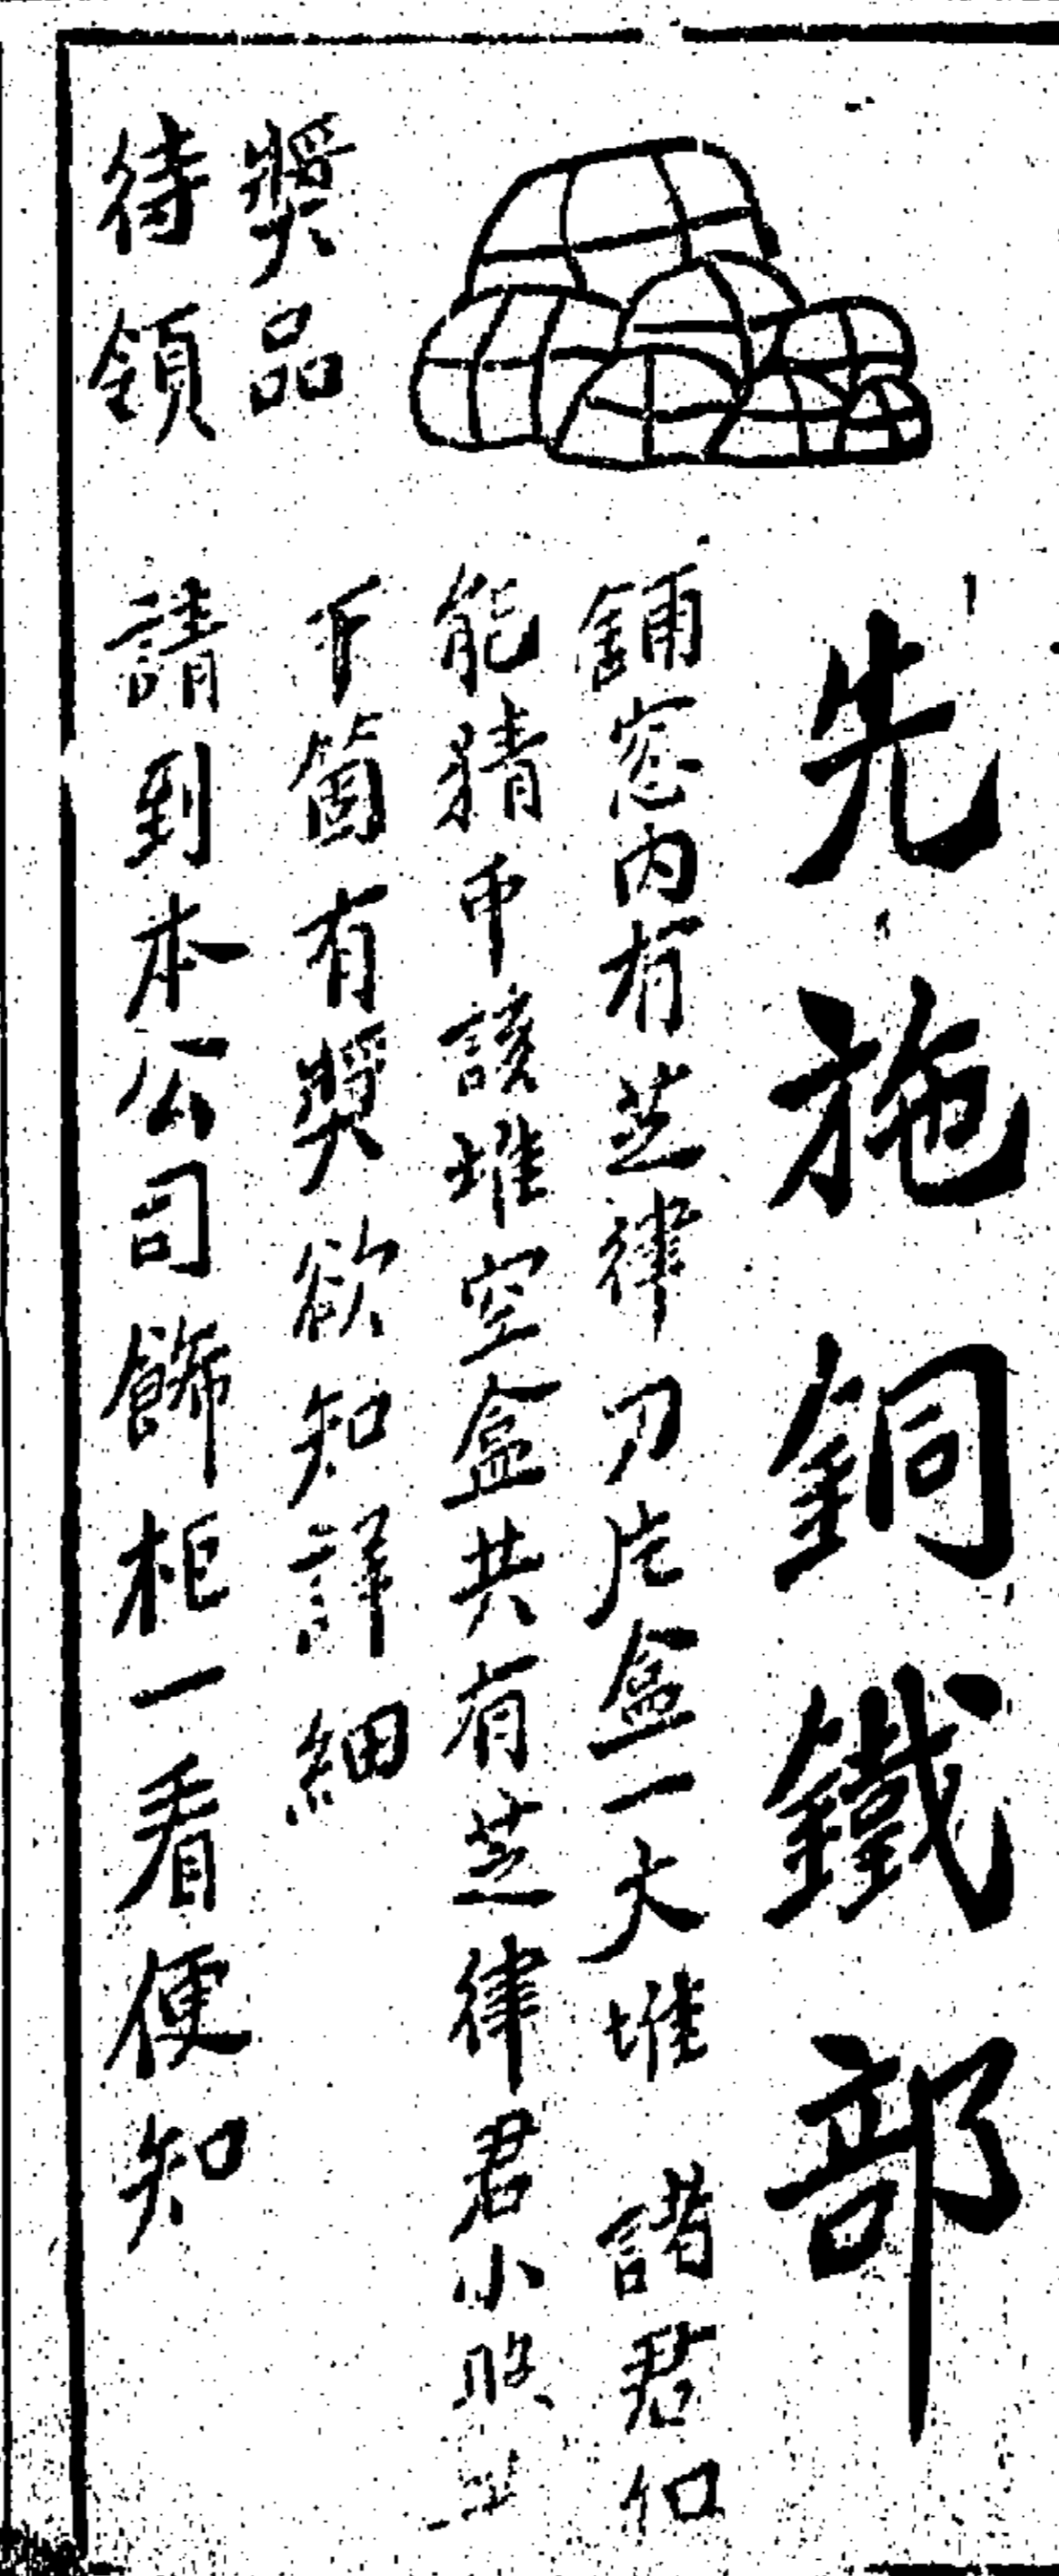 先施銅鐵部
鋪窓内有芝律刀片盒一大堆 諸君如
能猜中該堆空盒共有芝律君小照
下箇有奬欲知詳細
請到本公司飾柜一看便知
奬品
待領